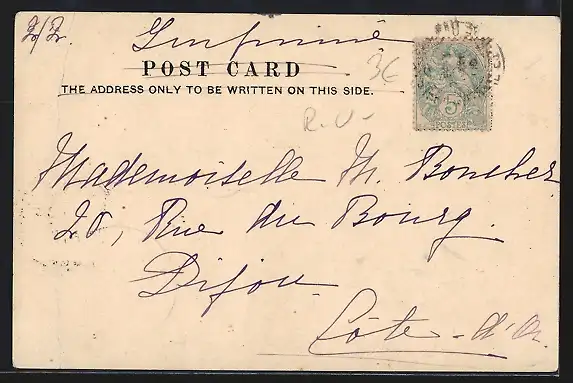 Imprimé
POST CARD
THE ADDRESS ONLY TO BE WRITTEN ON THIS SIDE.
3E
R.U-
Mademoiselle M. Boucher
20, Rue du Bourg.
Dijon
Côte-d'Or
5
POSTES